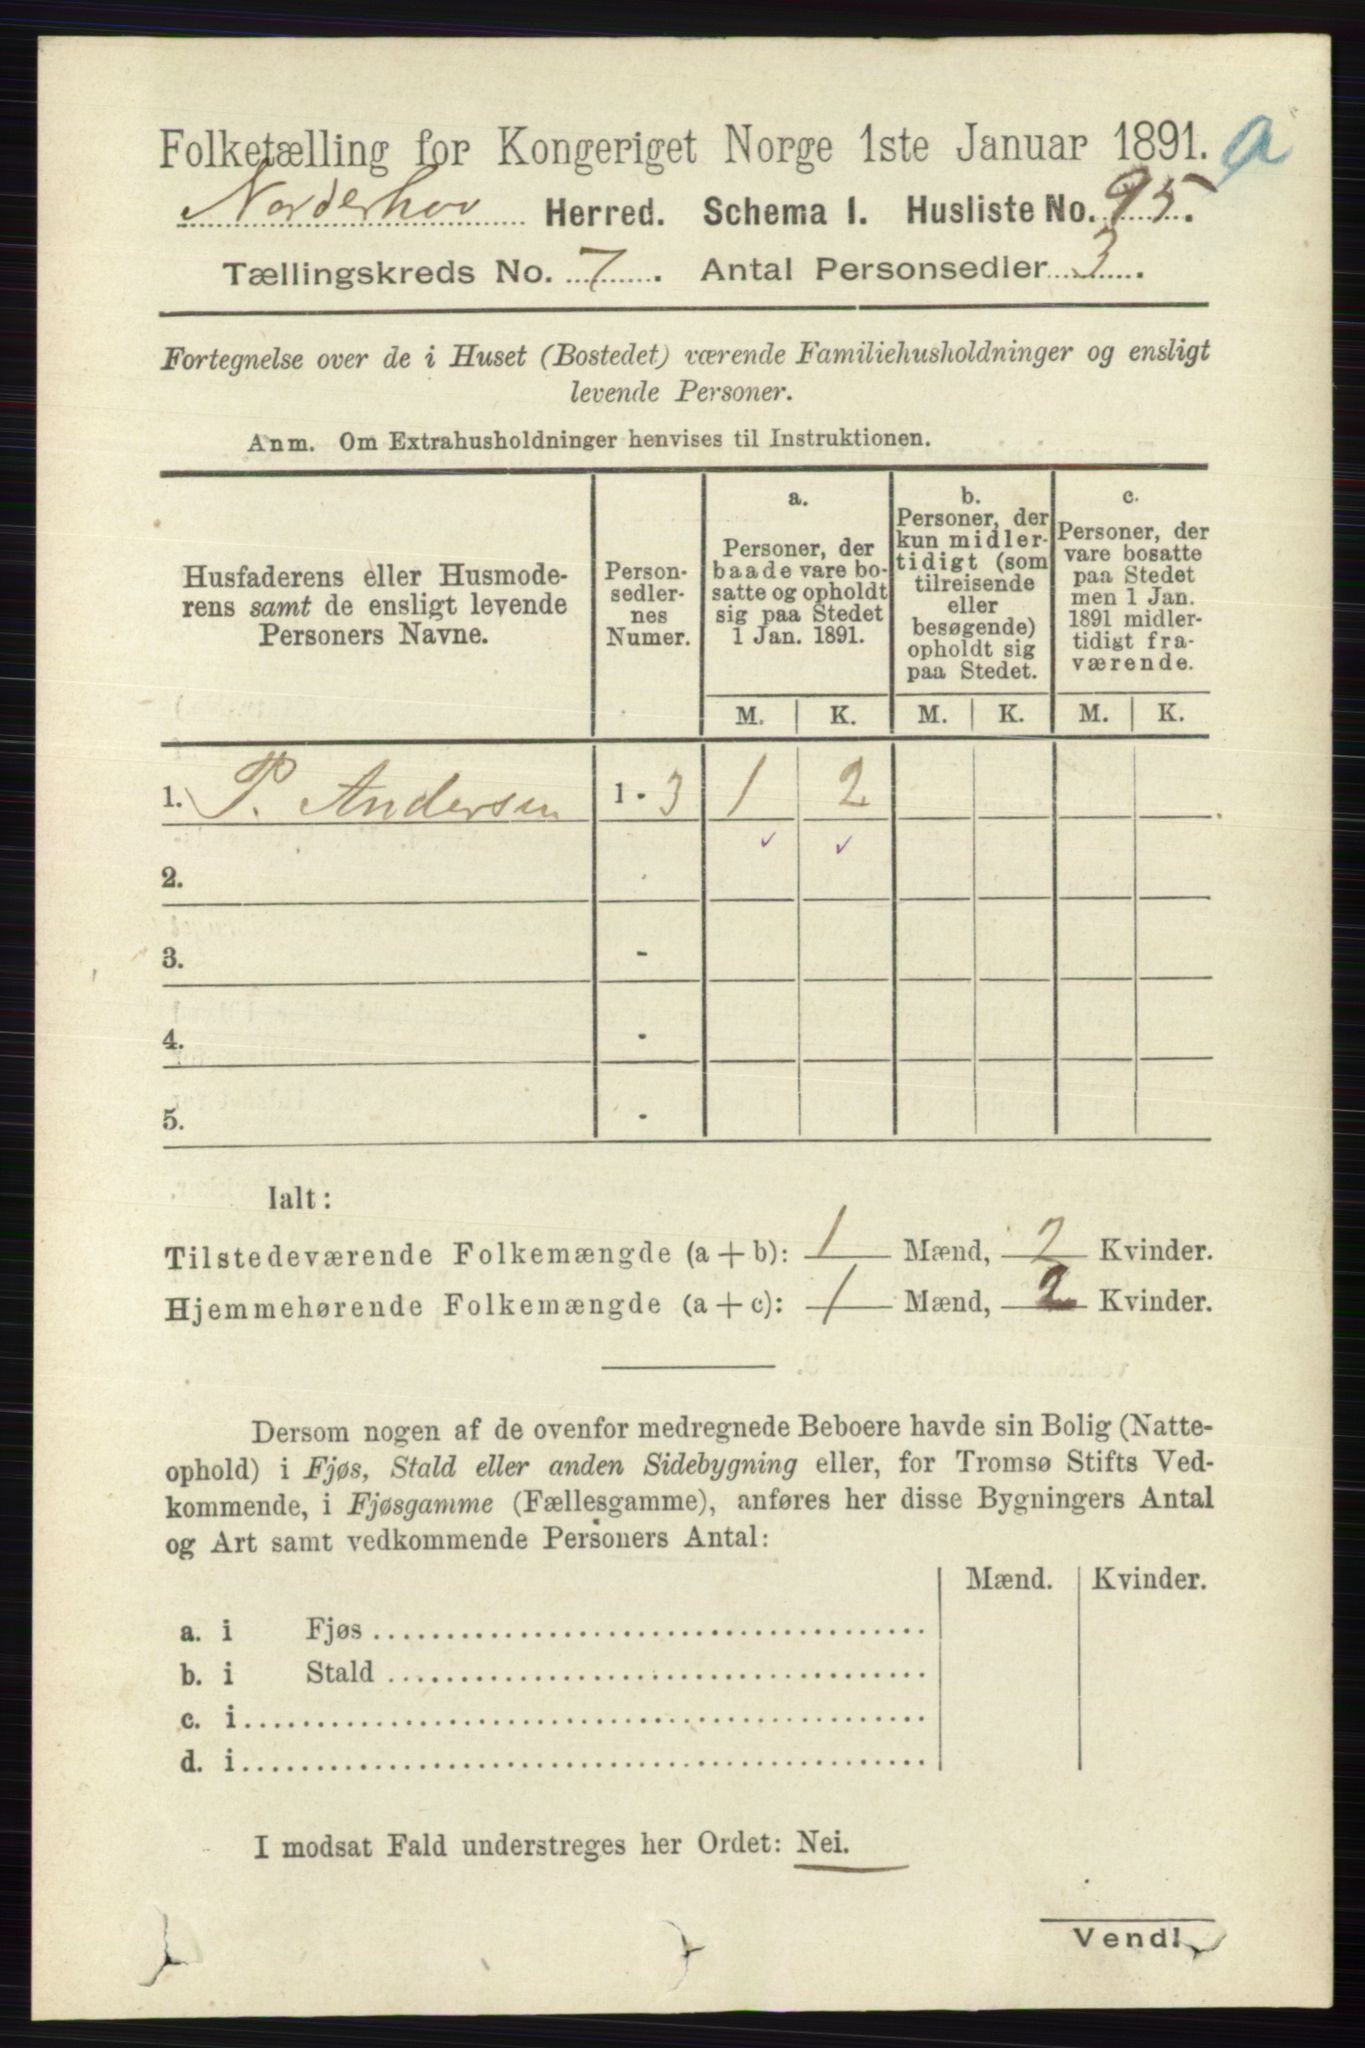 Folketælling for Kongeriget Norge 1ste Januar 1891. a
Norderhov Herred. Schema I. Husliste No. 95.
Tællingskreds No. 7. Antal Personsedler 3.
Fortegnelse over de i Huset (Bostedet) værende Familiehusholdninger og ensligt
levende Personer.
Anm. Om Extrahusholdninger henvises til Instruktionen.
Husfaderens eller Husmode-
rens samt de ensligt levende
Personers Navne.
Person-
sedler-
nes
Numer.
a.
Personer, der
baade vare bo-
satte og opholdt
sig paa Stedet
1 Jan. 1891.
b.
Personer, der
kun midler-
tidigt (som
tilreisende
eller
besøgende)
opholdt sig
paa Stedet.
c.
Personer, der
vare bosatte
paa Stedet
men 1 Jan.
1891 midler-
tidigt fra-
værende.
M. K. M. K. M. K.
1. P. Andersen 1 - 3 1 2
2.
3. -
4. -
5. -
Ialt:
Tilstedeværende Folkemængde (a + b): 1 Mænd, 2 Kvinder.
Hjemmehørende Folkemængde (a + c): 1 Mænd, 2 Kvinder.
Dersom nogen af de ovenfor medregnede Beboere havde sin Bolig (Natte-
ophold) i Fjøs, Stald eller anden Sidebygning eller, for Tromsø Stifts Ved-
kommende, i Fjøsgamme (Fællesgamme), anføres her disse Bygningers Antal
og Art samt vedkommende Personers Antal:
Mænd. Kvinder.
a. i Fjøs
b. i Stald
c. i
d. i
I modsat Fald understreges her Ordet: Nei.
Vend!